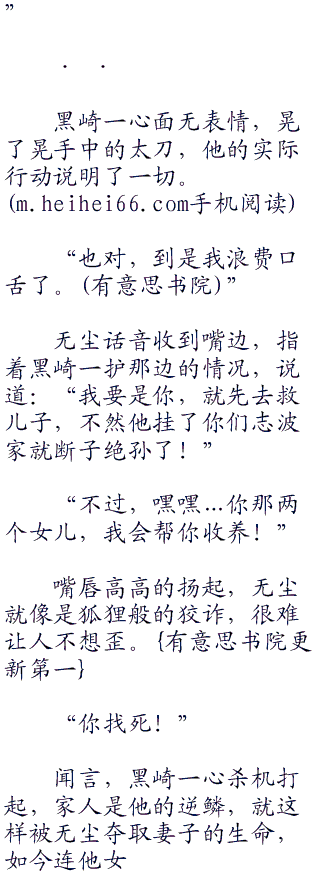 ”
. .
黑崎一心面无表情，晃
了晃手中的太刀，他的实际
行动说明了一切。
(m.heihei66.com手机阅读)
“也对，到是我浪费口
舌了。(有意思书院)”
无尘话音收到嘴边，指
着黑崎一护那边的情况，说
道：“我要是你，就先去救
儿子，不然他挂了你们志波
家就断子绝孙了！”
“不过，嘿嘿…你那两
个女儿，我会帮你收养！”
嘴唇高高的扬起，无尘
就像是狐狸般的狡诈，很难
让人不想歪。{有意思书院更
新第一}
“你找死！”
闻言，黑崎一心杀机打
起，家人是他的逆鳞，就这
样被无尘夺取妻子的生命，
如今连他女